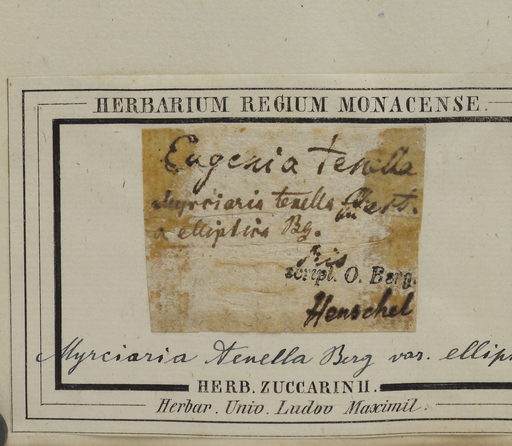 HERBARIUM REGIUM MONACENSE.
Eugenia tenella
Myrciaria tenella Bert.
α elliptica Bg.
script. O. Berg.
Henschel
Myrciaria tenella Berg var. ellip
HERB. ZUCCARINII.
Herbar. Univ. Ludov Maximil.